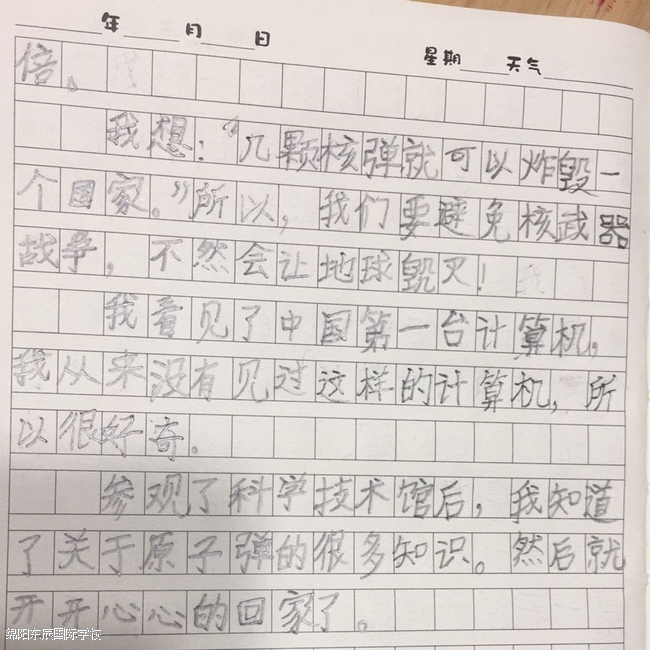 年 月 日
星期 天气
倍。
我想：“几颗核弹就可以炸毁一
个国家。”所以，我们要避免核武器
战争，不然会让地球毁灭！
我看见了中国第一台计算机，
我从来没有见过这样的计算机，所
以很好奇。
参观了科学技术馆后，我知道
了关于原子弹的很多知识。然后就
开开心心的回家了。
绵阳东辰国际学校